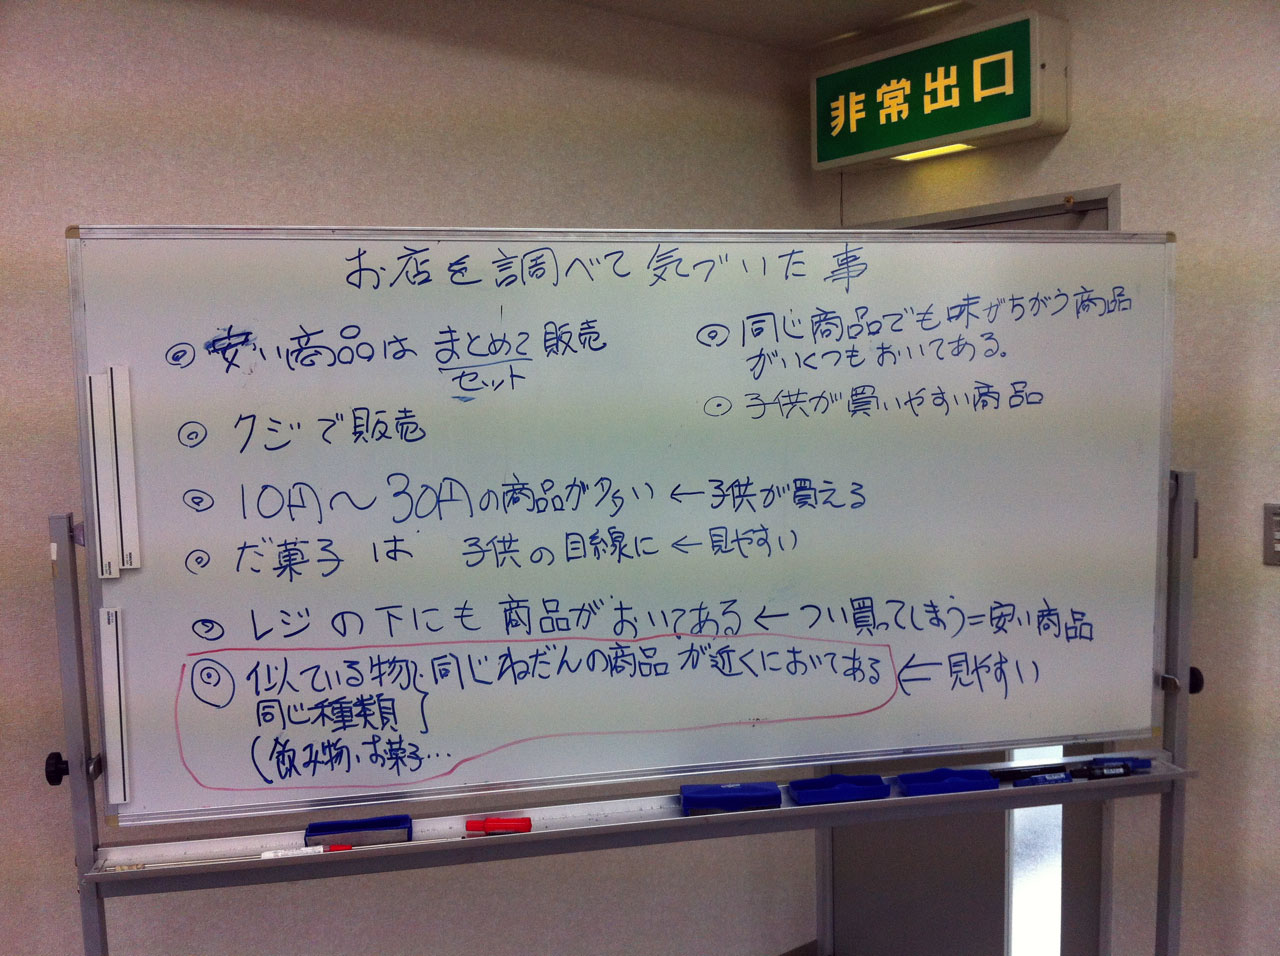 非常出口
お店を調べて気づいた事
◎安い商品はまとめて販売
セット
◎クジで販売
◎10円〜30円の商品が多い←子供が買える
◎だ菓子は 子供の目線に←見やすい
◎レジの下にも商品がおいてある←つい買ってしまう=安い商品
◎似ている物、同じねだんの商品が近くにおいてある←見やすい
同じ種類}
(飲み物、お菓子…
◎同じ商品でも味がちがう商品
がいくつもおいてある。
⊙子供が買いやすい商品